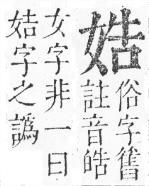 俗字舊
註音皓
女字非一曰
姞字之譌